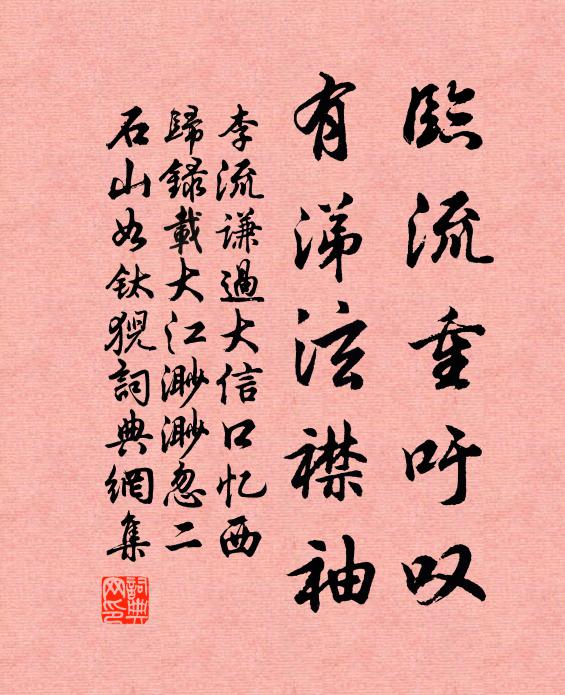 臨流重吁叹
有涕泫襟袖
李流谦過大信口忆西
歸録載大江渺渺忽二
石山如釱猊詞典網集
詞典网印